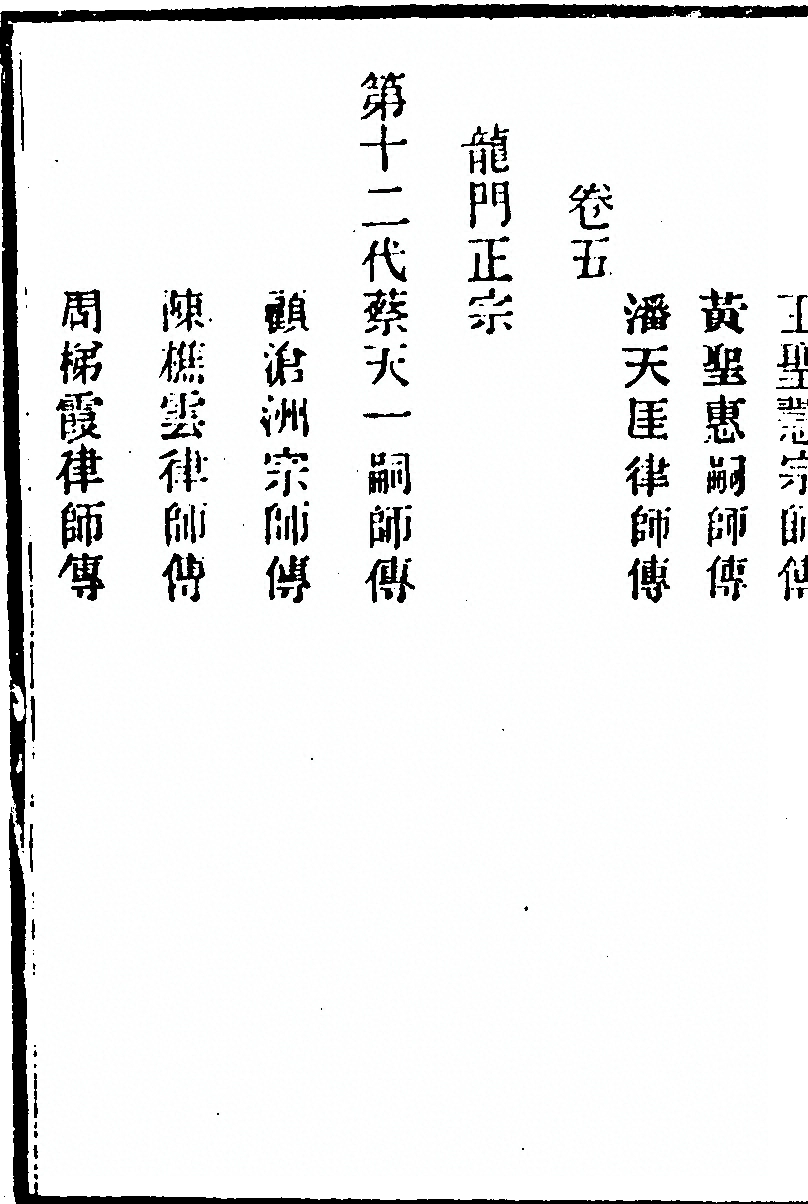 王聖慧宗師傳
黃聖惠嗣師傳
潘天厓律師傳
卷五
龍門正宗
第十二代蔡天一嗣師傳
顧滄洲宗師傳
陳樵雲律師傳
周梯霞律師傳